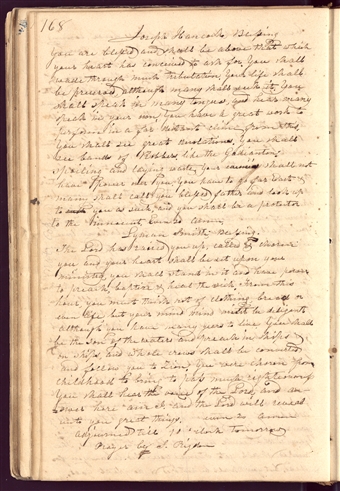 168
Joseph Hancock Blessing
You are blessed and shall be above that which
your heart has conceived to ask for. You shall
wade through much tribulation, Your life shall
be preserved although many shall seek it, You
shall speak in many tongues, and hear many
speak in your own, You have a great work to
perform in a far distant clime from this,
You shall see great revolutions, You shall
see bands of Robbers, like the gadianton
spoiling and laying waste, Your enemies shall not
have power over you, You have to go far West &
many shall call you blessed father and look up
to you as such, and you shall be a protector
to the innocent, Even so amen.
Lyman Smith Blessing.
The Lord has raised you up, called & chosen
you and your heart shall be set upon your
ministry, you shall stand in it and have power
to preach, baptize & heal the sick, from this
hour, you must think not of clothing bread or
own life but your mind must be diligent
although you have many years to live You shall
be the Son of the waters and preach in ships &
on ships, and whole crews shall be converted
and follow you to Zion, You were chosen from
childhood to bring to pass much righteousness
You shall hear the voice of the Lord, and an
and the Lord will reveal
unto you great things. amen
adjourned till 10 oclock tomorrow
Prayer by S. Rigdon